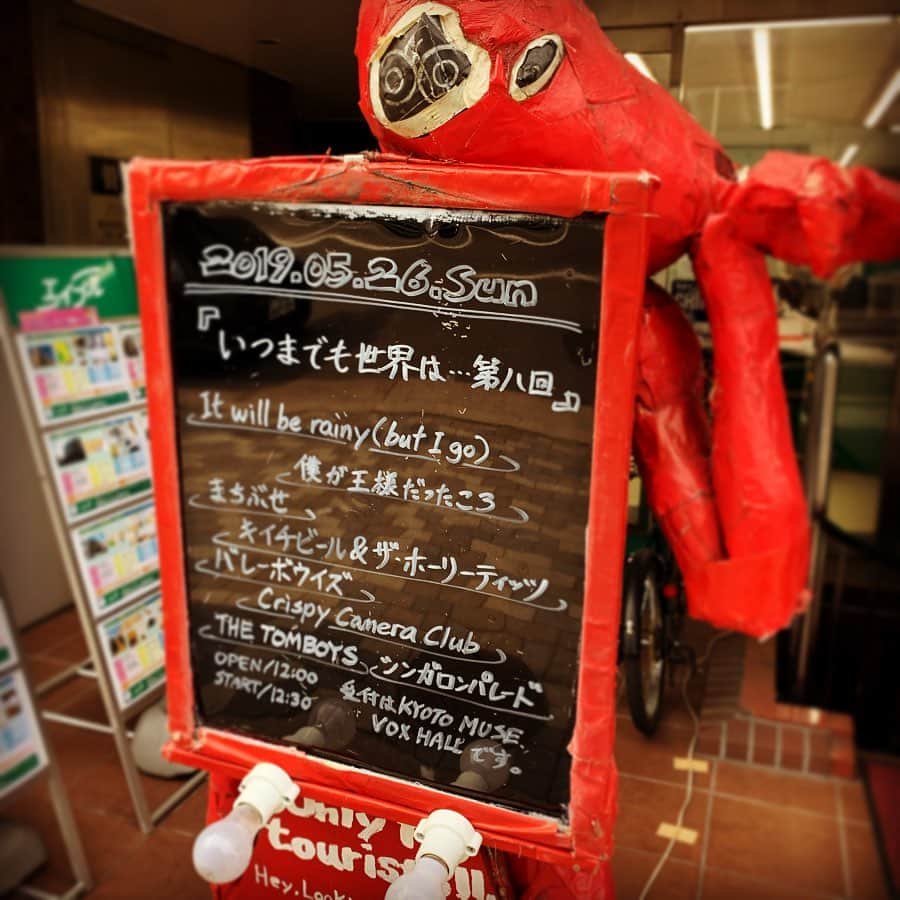 エイブル
2019.05.26.Sun
『いつまでも世界は…第八回』
It will be rainy(but I go)
僕が王様だったころ
まちぶせ
キイチビール&ザ・ホーリーティッツ
バレーボウイズ
Crispy Camera Club
THE TOMBOYS
シンガロンパレード
OPEN/12:00
START/12:30
受付はKYOTO MUSE
VOX HALLです。
Only
tourist
Hey, Look